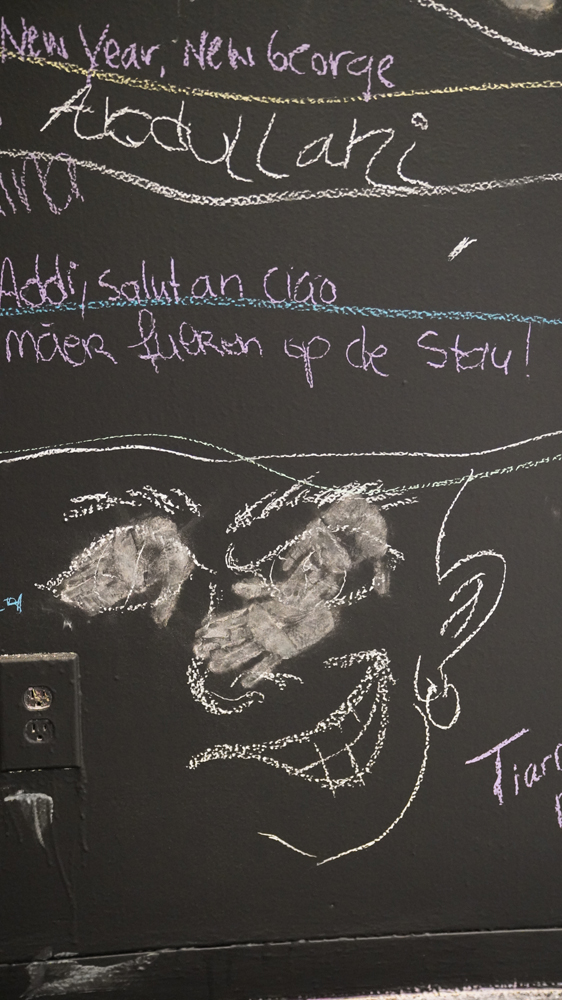 New Year, New George
Abdullahi
Addi, salut an ciao
mäer fueren op de Stau!